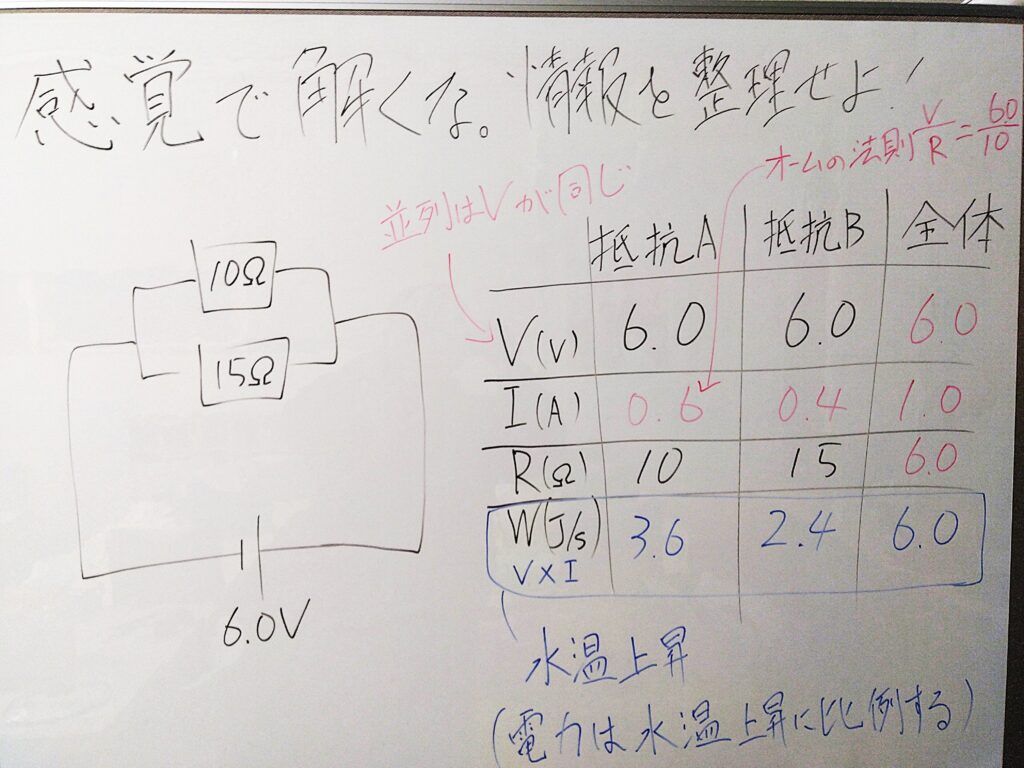 感覚で解くな。情報を整理せよ!
オームの法則 V/R = 6.0/10
並列はVが同じ
抵抗A 抵抗B 全体
V(V) 6.0 6.0 6.0
I(A) 0.6 0.4 1.0
R(Ω) 10 15 6.0
W(J/s) 3.6 2.4 6.0
V×I
10Ω
15Ω
6.0V
水温上昇
(電力は水温上昇に比例する)